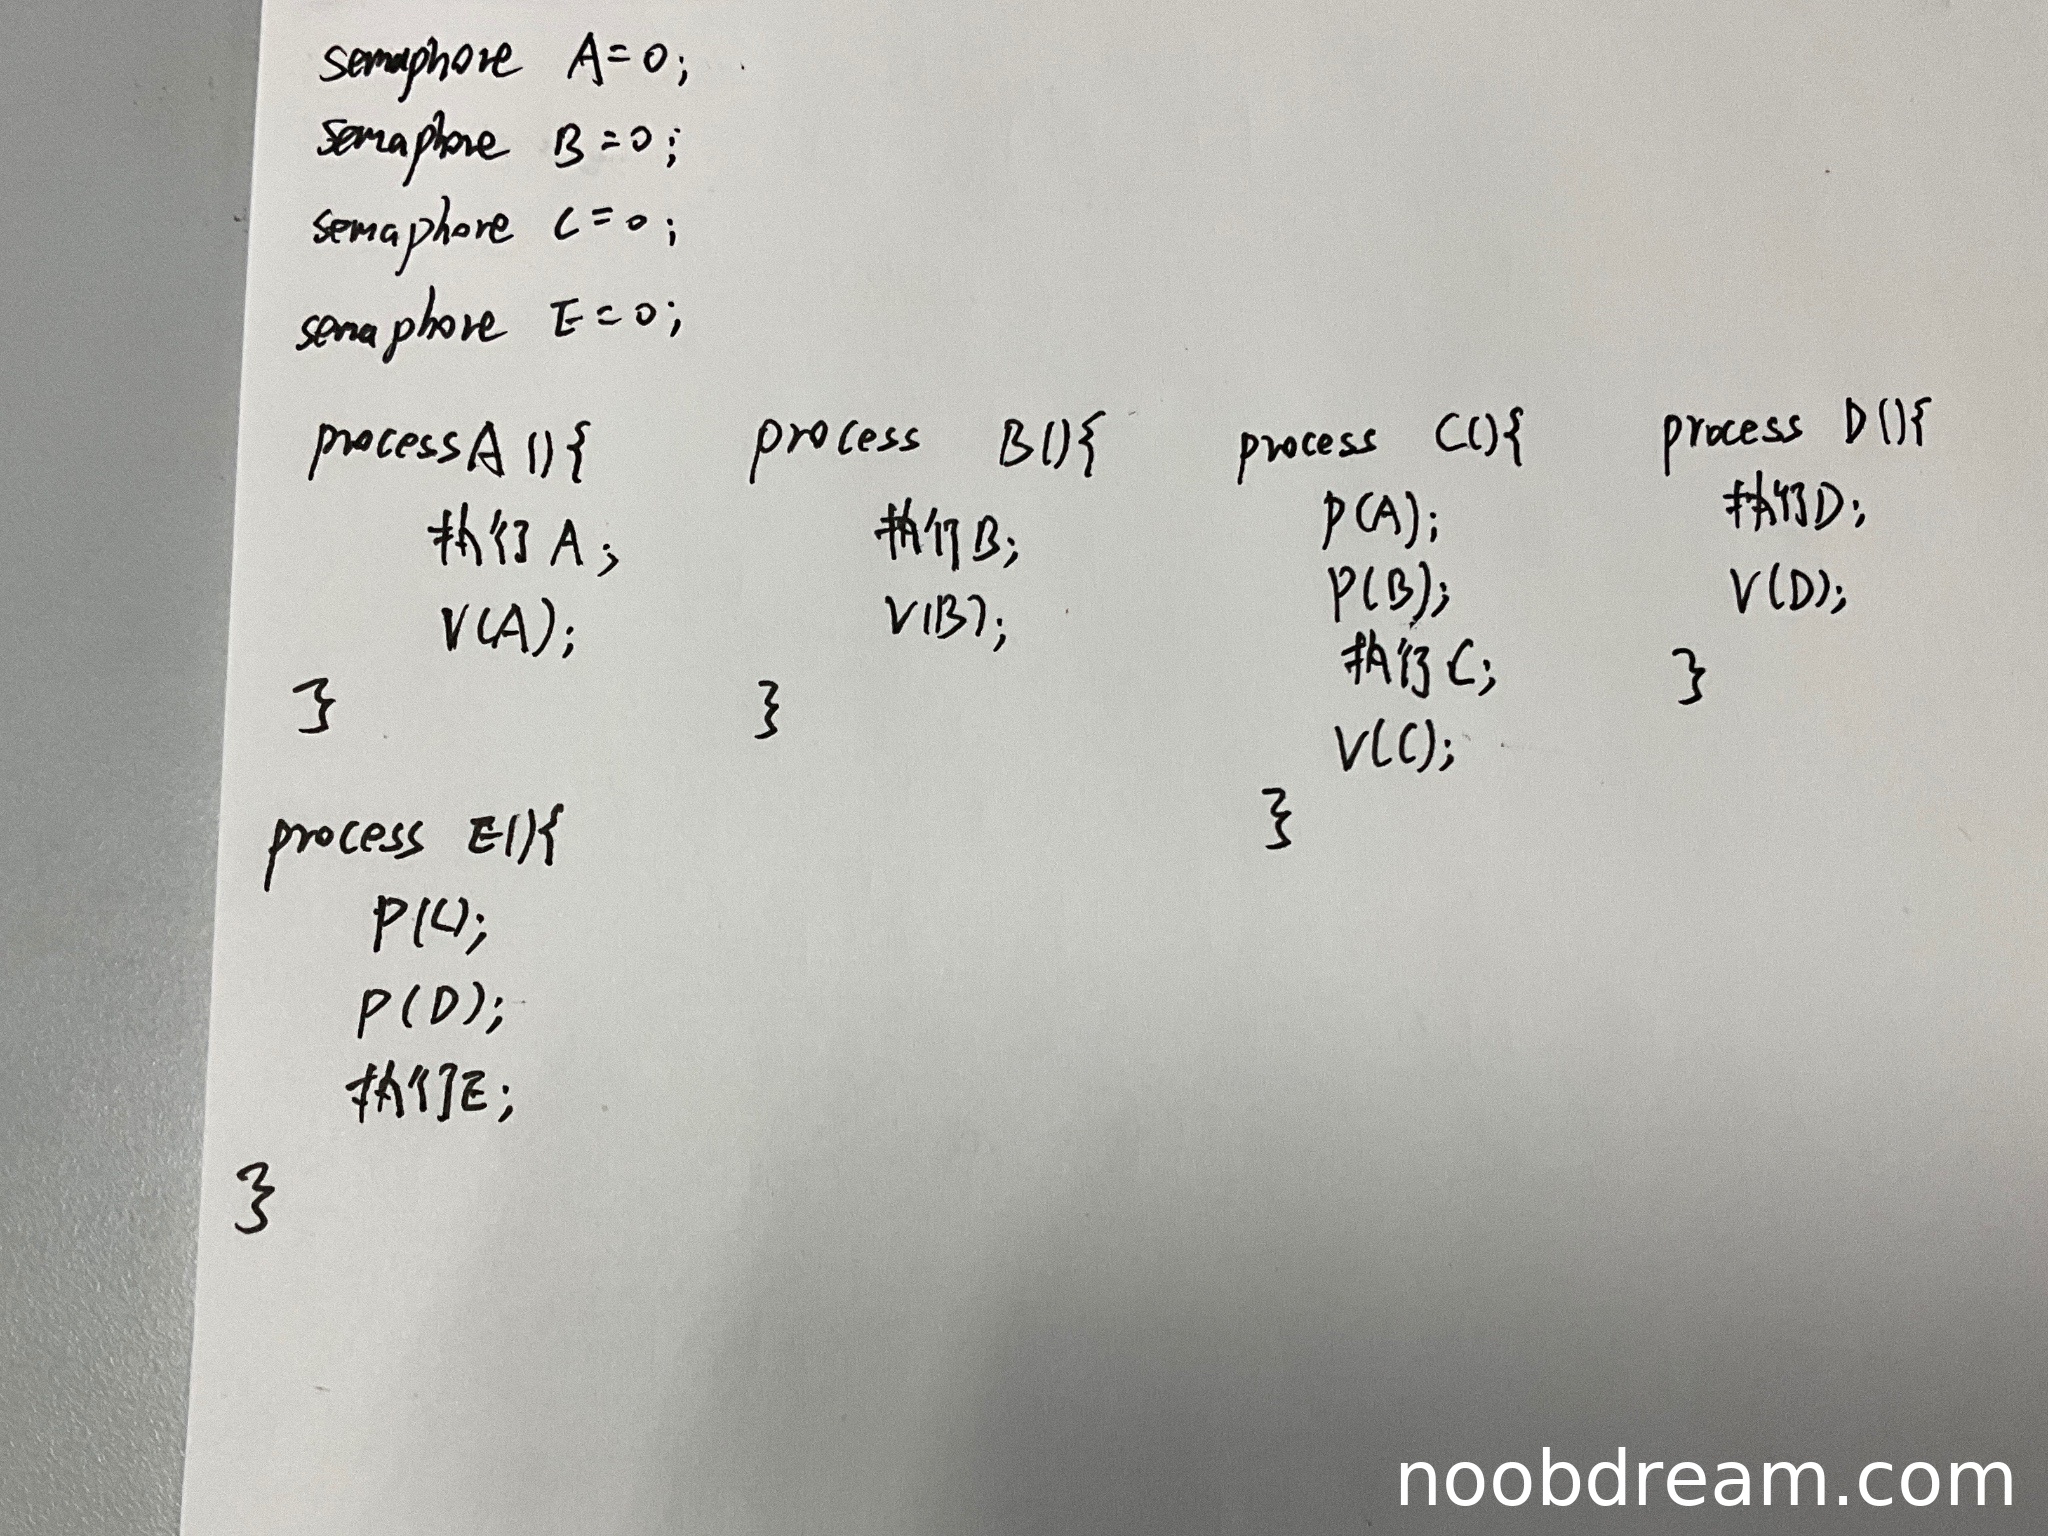 semaphore A=0;
semaphore B=0;
semaphore C=0;
semaphore E=0;
process A(){
执行A;
V(A);
}
process B(){
执行B;
V(B);
}
process C(){
P(A);
P(B);
执行C;
V(C);
}
process D(){
执行D;
V(D);
}
process E(){
P(C);
P(D);
执行E;
}
noobdream.com